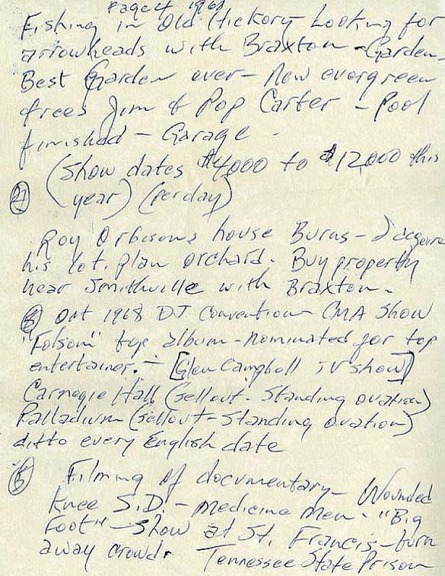 Page 4 1968
Fishing in Old Hickory Looking for
arrowheads with Braxton - Garden -
Best Garden ever - New evergreen
trees Jim & Pop Carter - Pool
finished - Garage -
(Show dates $4,000 to $12,000 this
year) (per day)
Roy Orbisons house Burns - I acquire
his lot. plan orchard. Buy property
near Smithville with Braxton -
Oct 1968 DJ Convention - CMA Show
"Folsom" top album - nominated for top
entertainer. - [Glen Campbell TV show]
Carnegie Hall (sellout - Standing ovation)
Palladium (sellout - Standing ovation)
ditto every English date
Filming of documentary - Wounded
Knee S.D. - Medicine Men - "Big
Foot" - Show at St. Francis - turn
away crowd. Tennessee State Prison